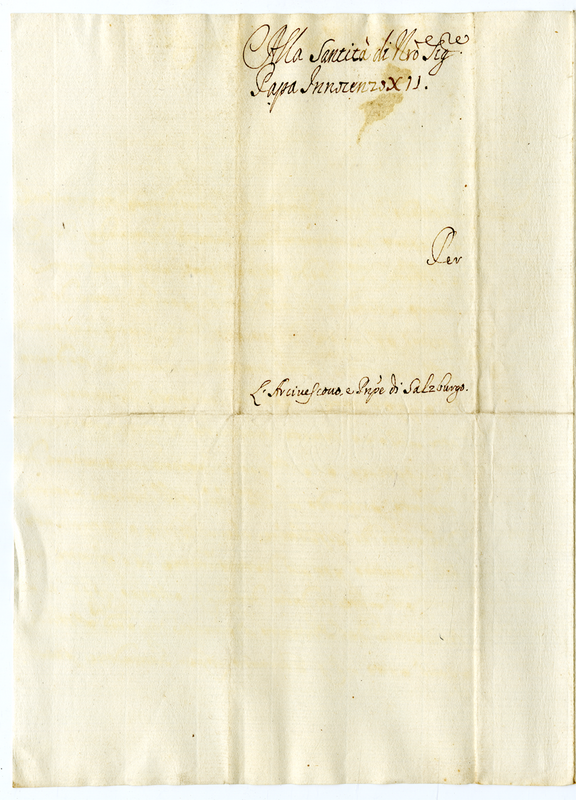 Alla Santità di Nrõ Sigre
Papa Innocenzo XII.
Per
L'Arcivescovo, e Prñpe di Salzburgo.